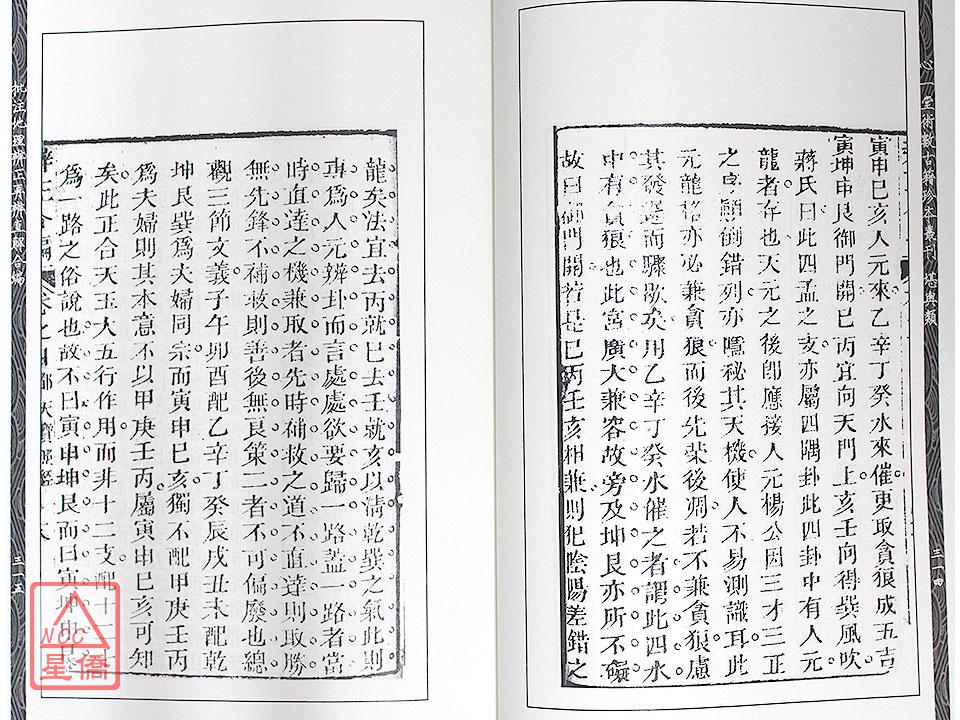 心一堂術數古籍珍本叢刊 堪輿類
三一四
寅申巳亥人元來乙辛丁癸水來催更取貪狼成五吉
寅坤申艮御門開巳丙宜向天門上亥壬向得巽風吹
蔣氏曰此四孟之支亦屬四隅卦此四卦中有人元
龍者存也天元之後卽應接人元楊公因三才三正
之序顛倒錯列亦隱祕其天機使人不易測識耳此
元龍格亦必兼貪狼而後先榮後凋若不兼貪狼慮
其發遲而驟歇矣用乙辛丁癸水催之者謂此四水
中有貪狼也此宮廣大兼容故旁及坤艮亦所不礙
故曰御門開若是巳丙壬亥相兼則犯陰陽差錯之
龍矣法宜去丙就巳去壬就亥以淸乾巽之氣此則
專爲人元辨卦而言處處欲要歸一路蓋一路者當
時直達之機兼取者先時補救之道不直達則取勝
無先鋒不補救則善後無良策二者不可偏廢也總
觀三節文義子午卯酉配乙辛丁癸辰戌丑未配乾
坤艮巽爲夫婦同宗而寅申巳亥獨不配甲庚壬丙
爲夫婦則其本意不以甲庚壬丙屬寅申巳亥可知
矣此正合天玉大五行作用而非十二支配十二干
爲一路之俗說也故不曰寅申坤艮而曰寅坤申艮
卷之四 都天寶照經
批注地理辨正
三一五
NCC
星僑